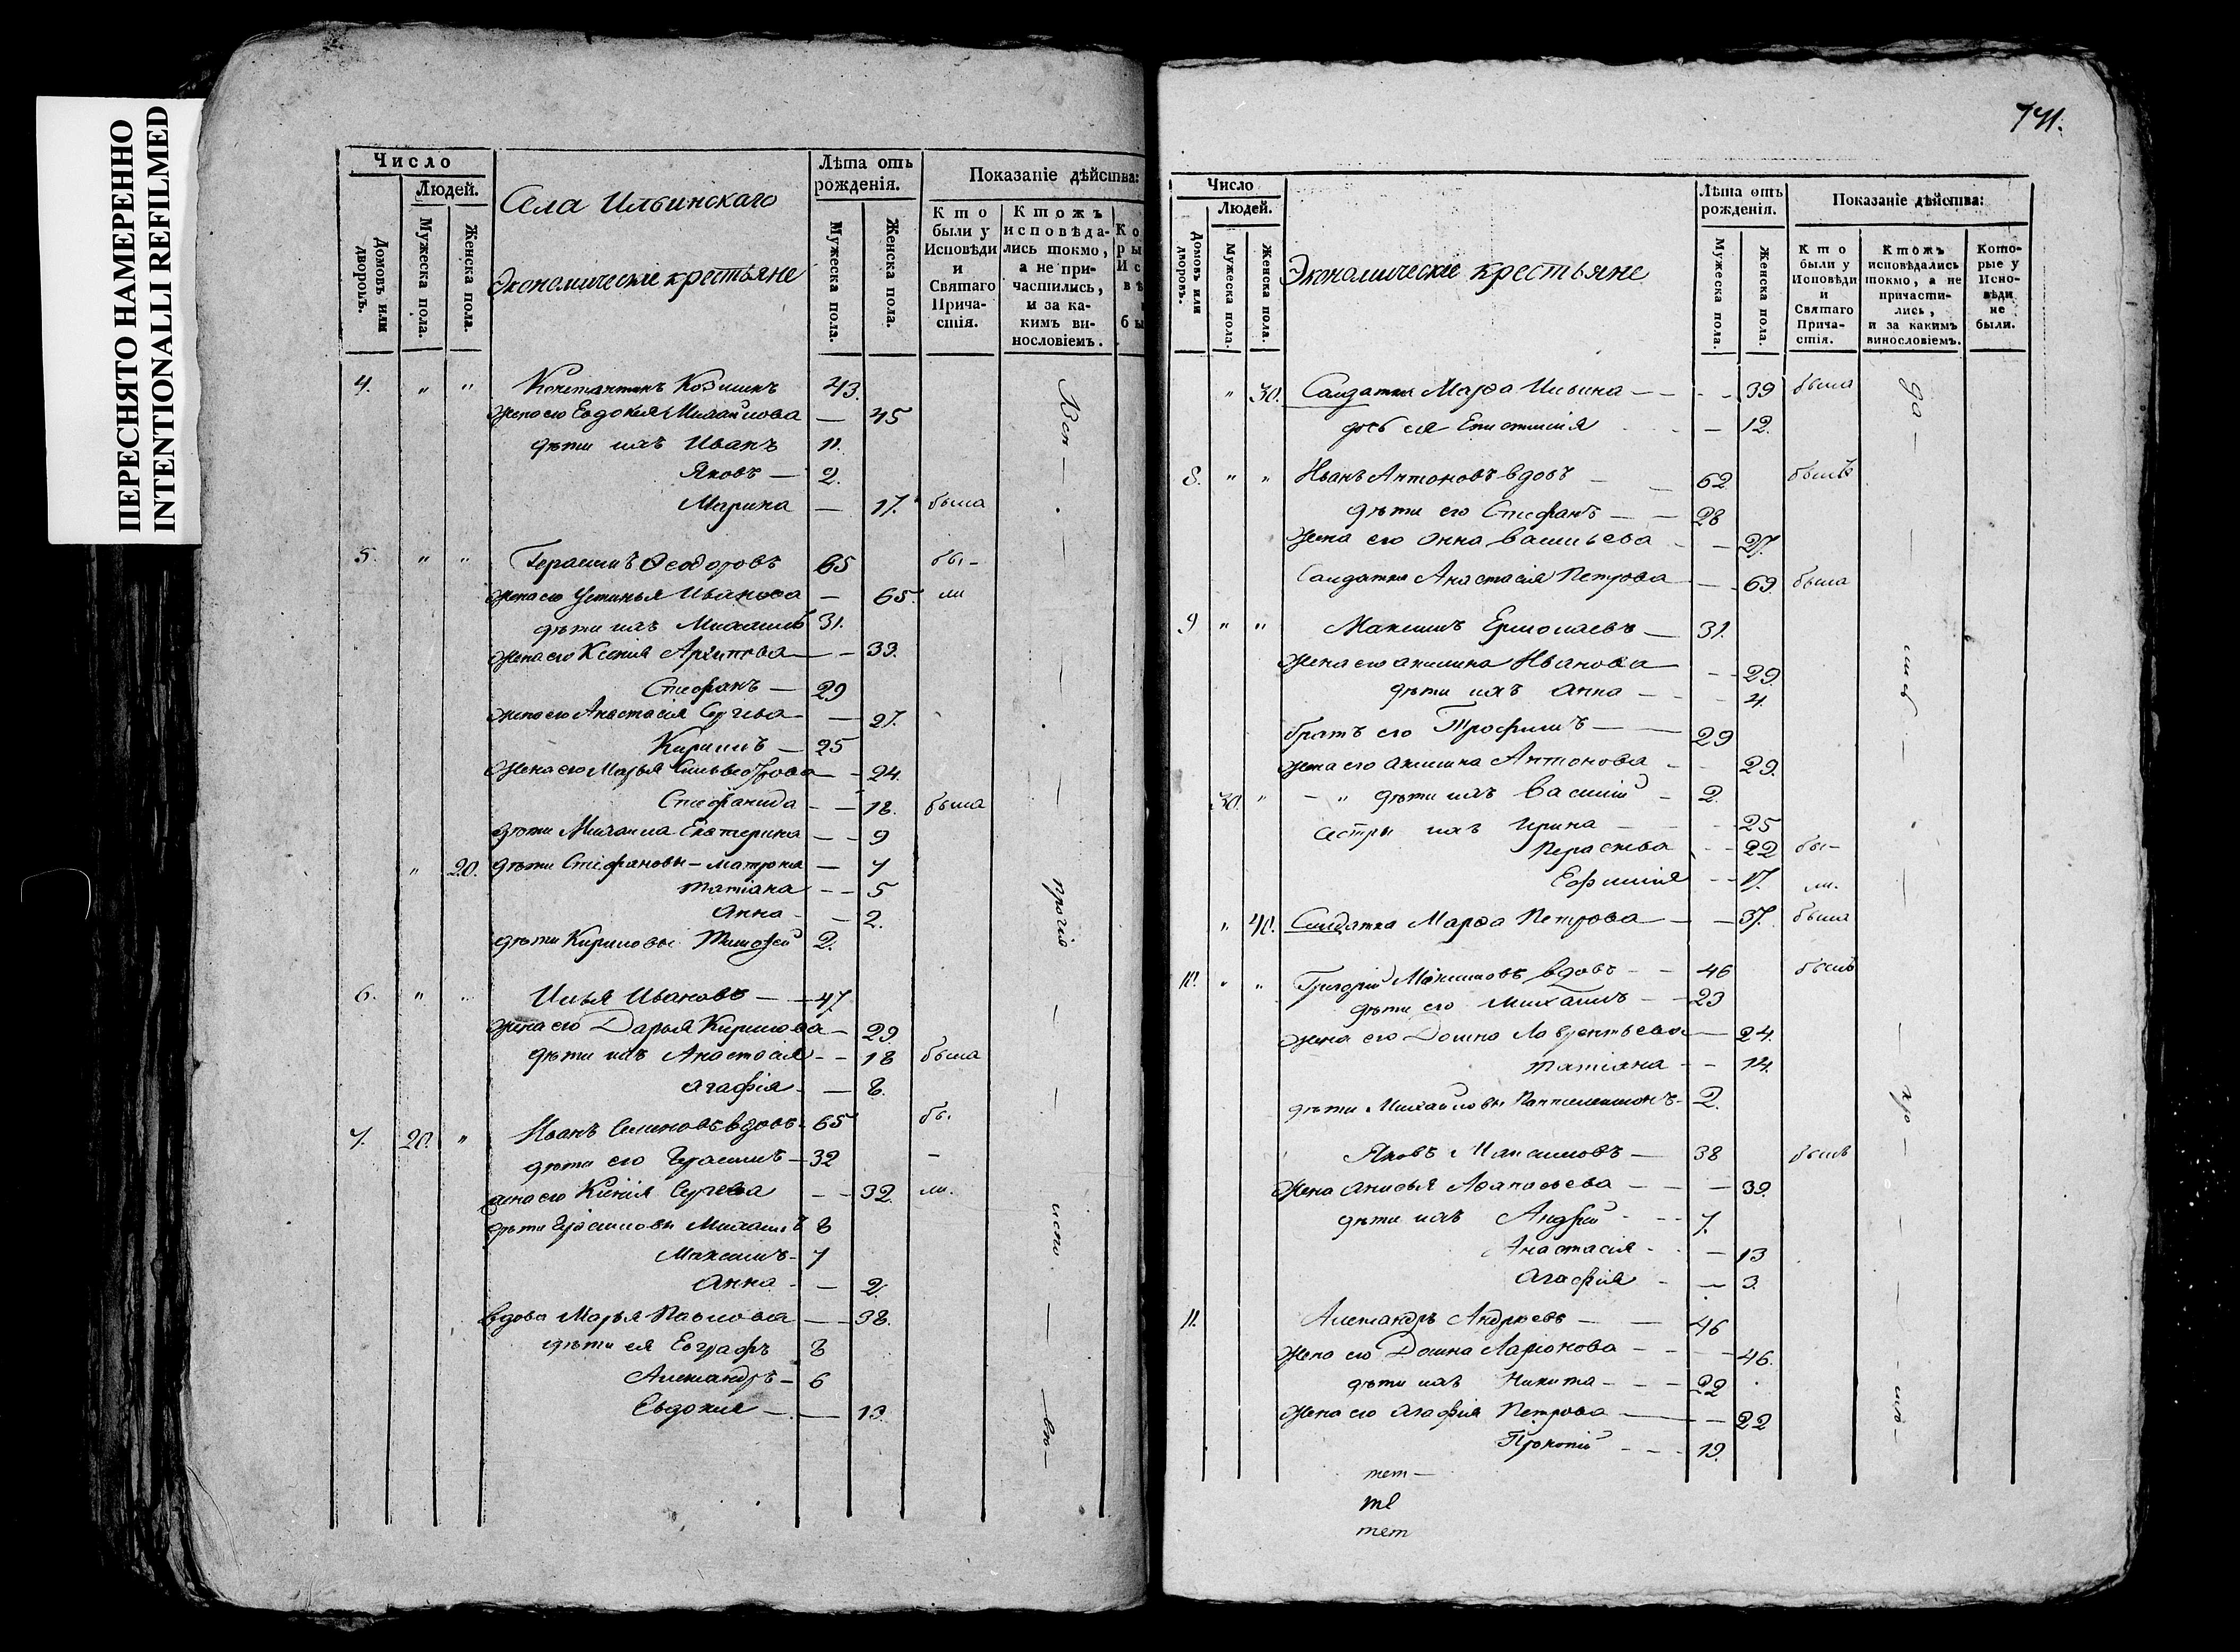 ПЕРЕСНЯТО НАМЕРЕННО
INTENTIONALLI REFILMED
Число
Людей.
Домовъ или дворовъ.
Мужеска пола.
Женска пола.
Села Ильинскаго
Экономическіе крестьяне
Лѣта отъ рожденія.
Мужеска пола.
Женска пола.
Показаніе дѣйства:
Кто были у Исповѣди и Святаго Прича-стія.
Ктожъ исповѣда-лись токмо, а не при-частились, и за ка-кимъ ви-нословіемъ.
4. " " Константинъ Козминъ 43.
Жена его Евдокия Михайлова — 45
дѣти ихъ Иванъ 11.
Яковъ — 2.
Марина — 17. была
5. " " Герасимъ Ѳеодоровъ 65 бы-
Жена его Устинья Иванова — 65. ли
дѣти ихъ Михаилъ 31.
Жена его Ксенія Архипова — 33.
Стефанъ — 29
Жена его Анастасія Сергѣева — 27.
Кирилъ — 25
Жена его Марья Сильвестрова — 24.
Стефанида — 18. была
дѣти Михаила Екатерина — 9
" 20. дѣти Стефановы — Матрона — 7
Татіана — 5
Анна — 2.
дѣти Кириловы Тимоѳей 2.
6. " " Илья Ивановъ — 47.
Жена его Дарья Кирилова — 29.
дѣти ихъ Анастасія — 18 была
Агафія — 8.
7. 20. " Иванъ Семеновъ вдовъ 65 бы-
дѣти его Герасимъ — 32 -
жена его Ксенія Сергѣева — 32. ли.
дѣти Герасимовы Михаилъ 8
Максимъ — 7
Анна — 2.
вдова Марья Павлова — 38.
дѣти ея Евграфъ 8
Александръ — 6
Евдокия — 13.
Вси — прочія — испо — вѣ —
741.
Число
Людей.
Домовъ или дворовъ.
Мужеска пола.
Женска пола.
Экономическіе крестьяне
Лѣта отъ рожденія.
Мужеска пола.
Женска пола.
Показаніе дѣйства:
Кто были у Исповѣди и Святаго Прича-стія.
Ктожъ исповѣдались токмо, а не причасти-лись, и за какимъ винословіемъ.
Кото-рые у Испо-вѣди не были.
" 30. Салдатка Марѳа Ильина — 39 была
дочь ея — 12.
8. " " Иванъ Антоновъ вдовъ — 62 былъ
дѣти его Стефанъ — 28
Жена его Анна Васильева — 27.
Салдатка Анастасія Петрова — 69. была
9 " " Максимъ Ермолаевъ — 31.
Жена его Акилина Иванова — 29.
дѣти ихъ Анна — 4.
братъ его Трофимъ — 29
Жена его Акилина Антонова — 29.
30. " дѣти ихъ Василій — 2.
сестры ихъ Ирина — 25
Параскева — 22 бы-
Ефимія — 17. ли.
" 40. Салдатка Марѳа Петрова — 37. была
10. " " Григорій Максимовъ вдовъ — 46 былъ
дѣти его Михаилъ — 23
Жена его Домна Лаврентьева — 24.
Татіана — 14.
дѣти Михайловы Пантелеимонъ — 2.
Яковъ Максимовъ — 38 былъ
Жена Анисья Аѳанасьева — 39.
дѣти ихъ Андрей — 7.
Анастасія — 13
Агафія — 3.
11. Александръ Андреевъ — 46
Жена его Домна Ларіонова — 46.
дѣти ихъ Никита — 22
Жена его Агафія Петрова — 22
Прокопій — 19.